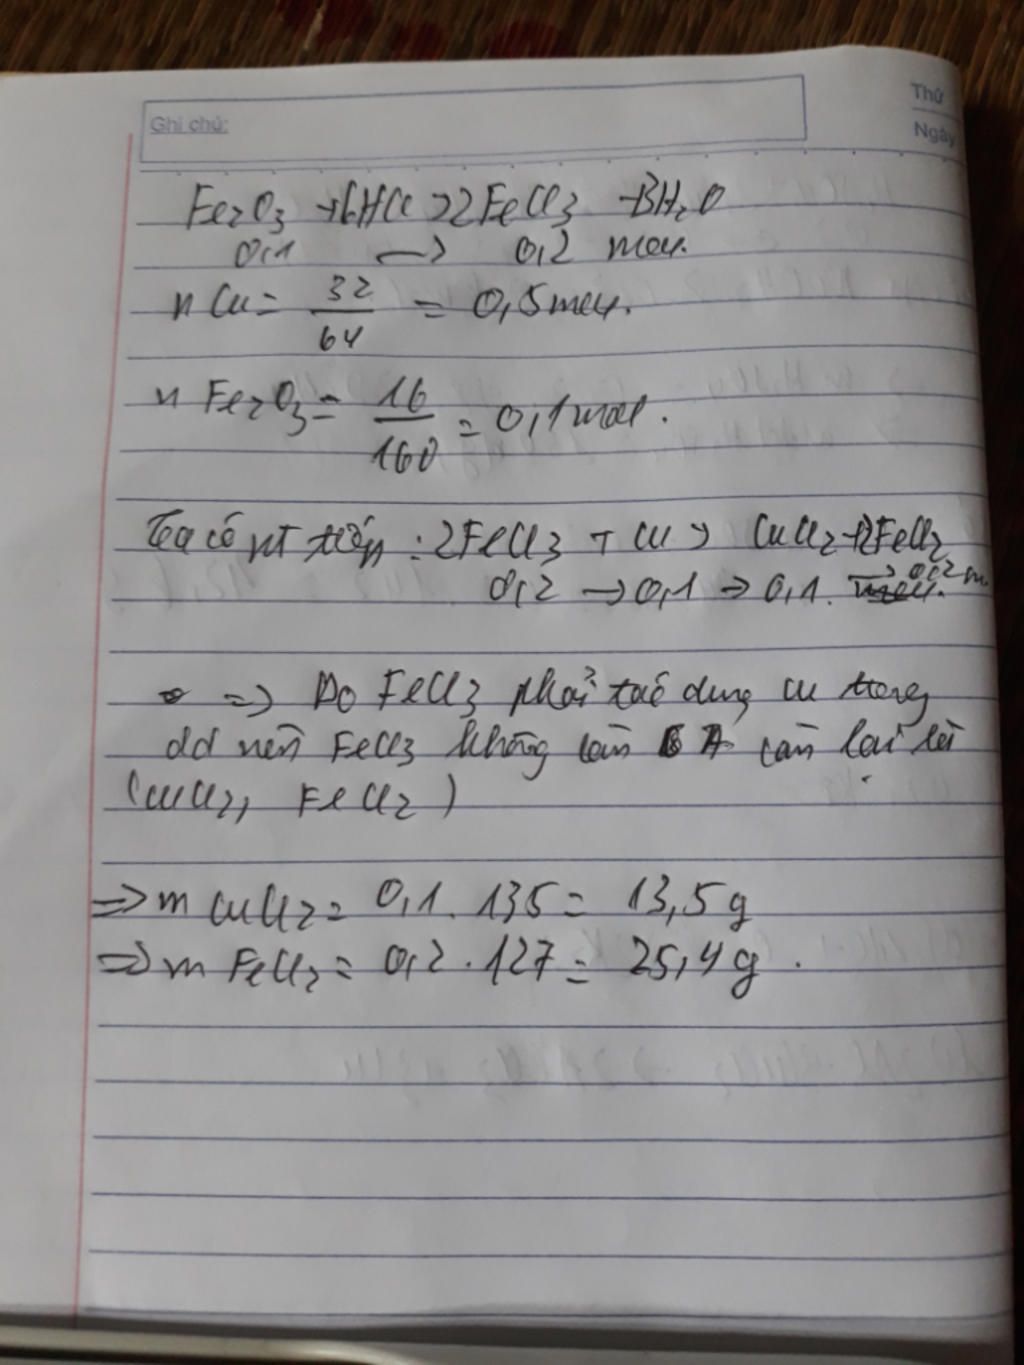 Ghi chú:
Thứ
Ngày
Fe2O3 +6HCl → 2FeCl3 +3H2O
0,1 → 0,2 mol.
nCu = 32/64 = 0,5 mol.
n Fe2O3 = 16/160 = 0,1 mol.
Ta có pt tiếp : 2FeCl3 + Cu → CuCl2 + 2FeCl2
0,2 → 0,1 → 0,1. → 0,2 m.
=> Do FeCl3 phải tác dụng Cu trong
dd nên FeCl3 không còn còn lại là
(CuCl2, FeCl2)
=> m CuCl2 = 0,1 . 135 = 13,5 g
=> m FeCl2 = 0,2 . 127 = 25,4 g .